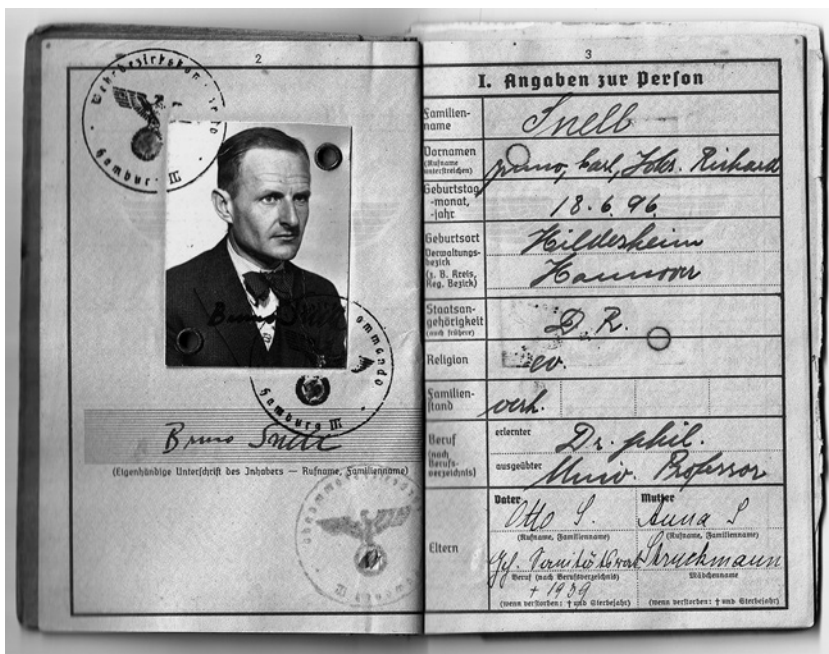 2
Hamburg III
Bruno Snell
Hamburg III
Bruno Snell
(Eigenhändige Unterschrift des Inhabers — Rufname, Familienname)
3
I. Angaben zur Person
Familien-
name
Snell
Vornamen
(Rufname
unterstreichen)
Bruno, Carl, Johs. Richard
Geburtstag
-monat,
-jahr
18.6.96
Geburtsort
Verwaltungs-
bezirk
(z. B. Kreis,
Reg. Bezirk)
Hildesheim
Hannover
Staatsan-
gehörigkeit
(auch frühere)
D. R.
Religion
ev.
Familien-
stand
verh.
Beruf
(nach
Berufs-
verzeichnis)
erlernter
Dr. phil.
ausgeübter
Univ. Professor
Eltern
Vater
Otto S.
(Rufname, Familienname)
Geh. Sanitätsrat
Beruf (nach Berufsverzeichnis)
+ 1939
(wenn verstorben: † und Sterbejahr)
Mutter
Anna S
(Rufname, Familienname)
Struckmann
Mädchenname
(wenn verstorben: † und Sterbejahr)